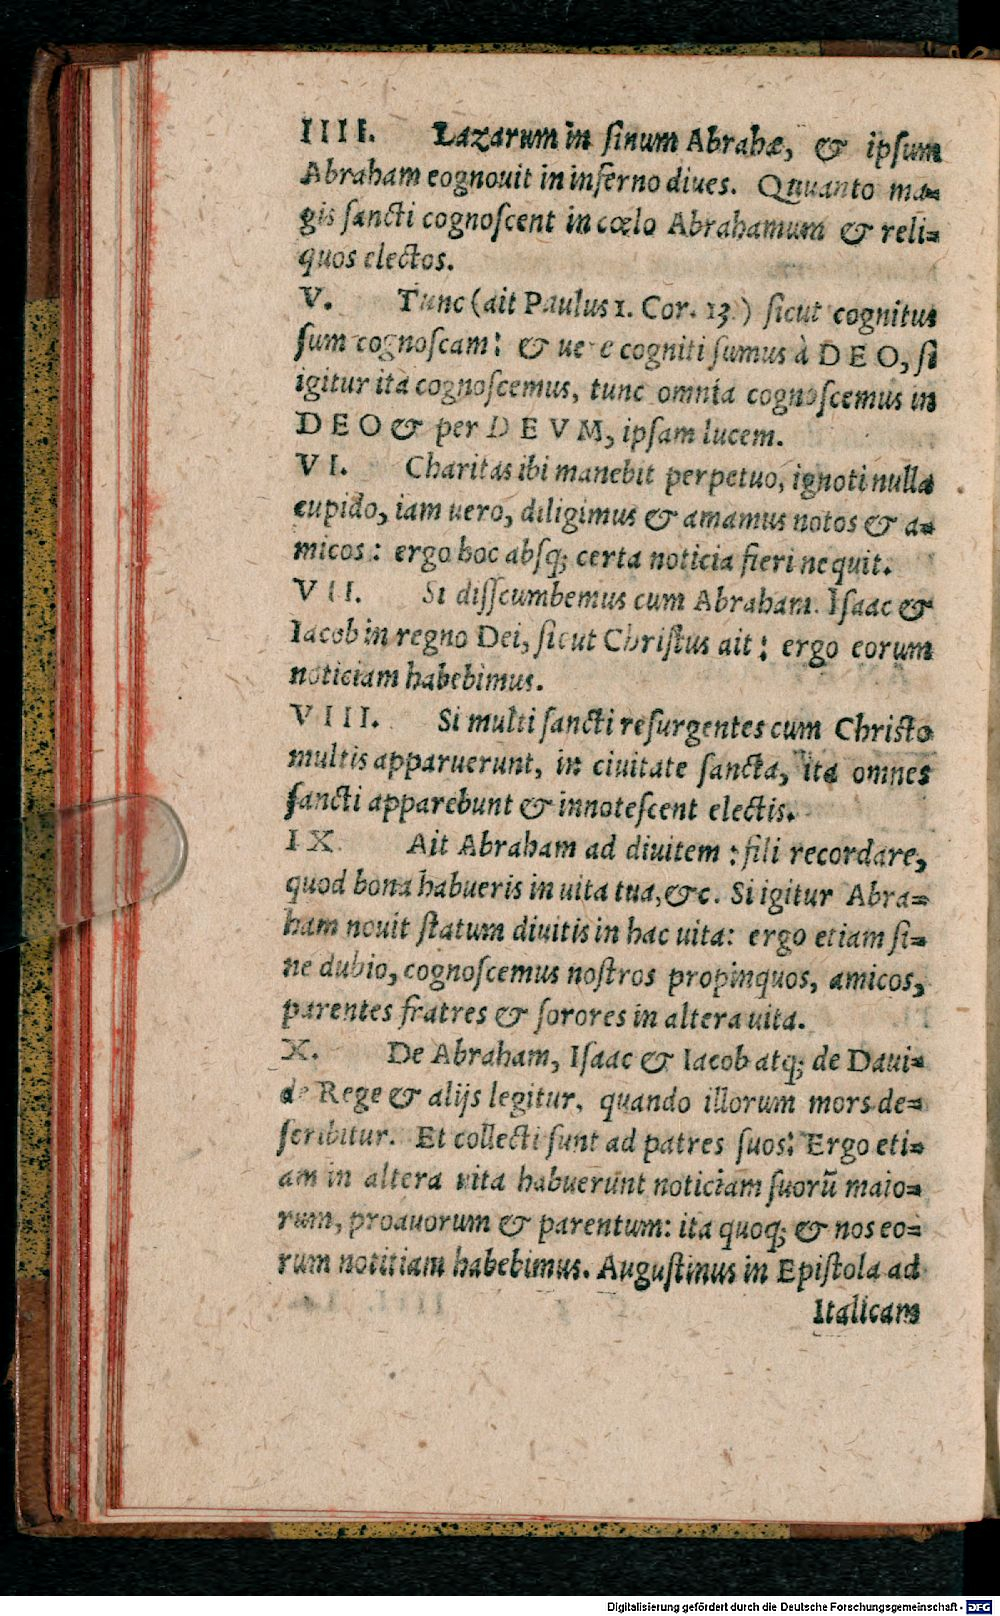 IIII. Lazarum in ſinum Abrahæ, & ipſum
Abraham eognouit in inferno diues. Quuanto ma=
gis ſancti cognoſcent in cœlo Abrahamum & reli=
quos electos.
V. Tunc (ait Paulus 1. Cor. 13.) ſicut cognitus
ſum cognoſcam: & uere cogniti ſumus à DEO, ſi
igitur ita cognoſcemus, tunc omnia cognoſcemus in
DEO & per DEVM, ipſam lucem.
VI. Charitas ibi manebit perpetuo, ignoti nulla
cupido, iam uero, diligimus & amamus notos & a=
micos: ergo hoc abſq; certa noticia fieri nequit.
VII. Si diſſcumbemus cum Abraham. Iſaac &
Iacob in regno Dei, ſicut Chriſtus ait: ergo eorum
noticiam habebimus.
VIII. Si multi ſancti reſurgentes cum Chriſto
multis apparuerunt, in ciuitate ſancta, ita omnes
ſancti apparebunt & innoteſcent electis.
IX. Ait Abraham ad diuitem: fili recordare,
quod bona habueris in uita tua, &c. Si igitur Abra=
ham nouit ſtatum diuitis in hac uita: ergo etiam ſi=
ne dubio, cognoſcemus noſtros propinquos, amicos,
parentes fratres & ſorores in altera uita.
X. De Abraham, Iſaac & Iacob atq; de Daui=
de Rege & alijs legitur, quando illorum mors de=
ſcribitur. Et collecti ſunt ad patres ſuos: Ergo eti=
am in altera uita habuerunt noticiam ſuorū maio=
rum, proauorum & parentum: ita quoq; & nos eo=
rum notitiam habebimus. Auguſtinus in Epiſtola ad
Italicam
Digitalisierung gefördert durch die Deutsche Forschungsgemeinschaft - DFG